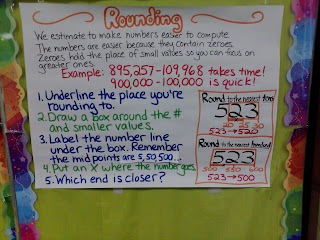 Rounding
We estimate to make numbers easier to compute.
The numbers are easier because they contain zeroes.
Zeroes hold the place of small values so you can focus on
greater ones.
Example: 895,257-109,968 takes time!
900,000-100,000 is quick!
1. Underline the place you're
rounding to.
2. Draw a box around the #
and smaller values.
3. Label the number line
under the box. Remember
the midpoints are 5, 50, 500...
4. Put an X where the number goes.
5. Which end is closer?
Round to the nearest ten
523
20 25 30
523→520
Round to the nearest hundred
523
500 550 600
523→500